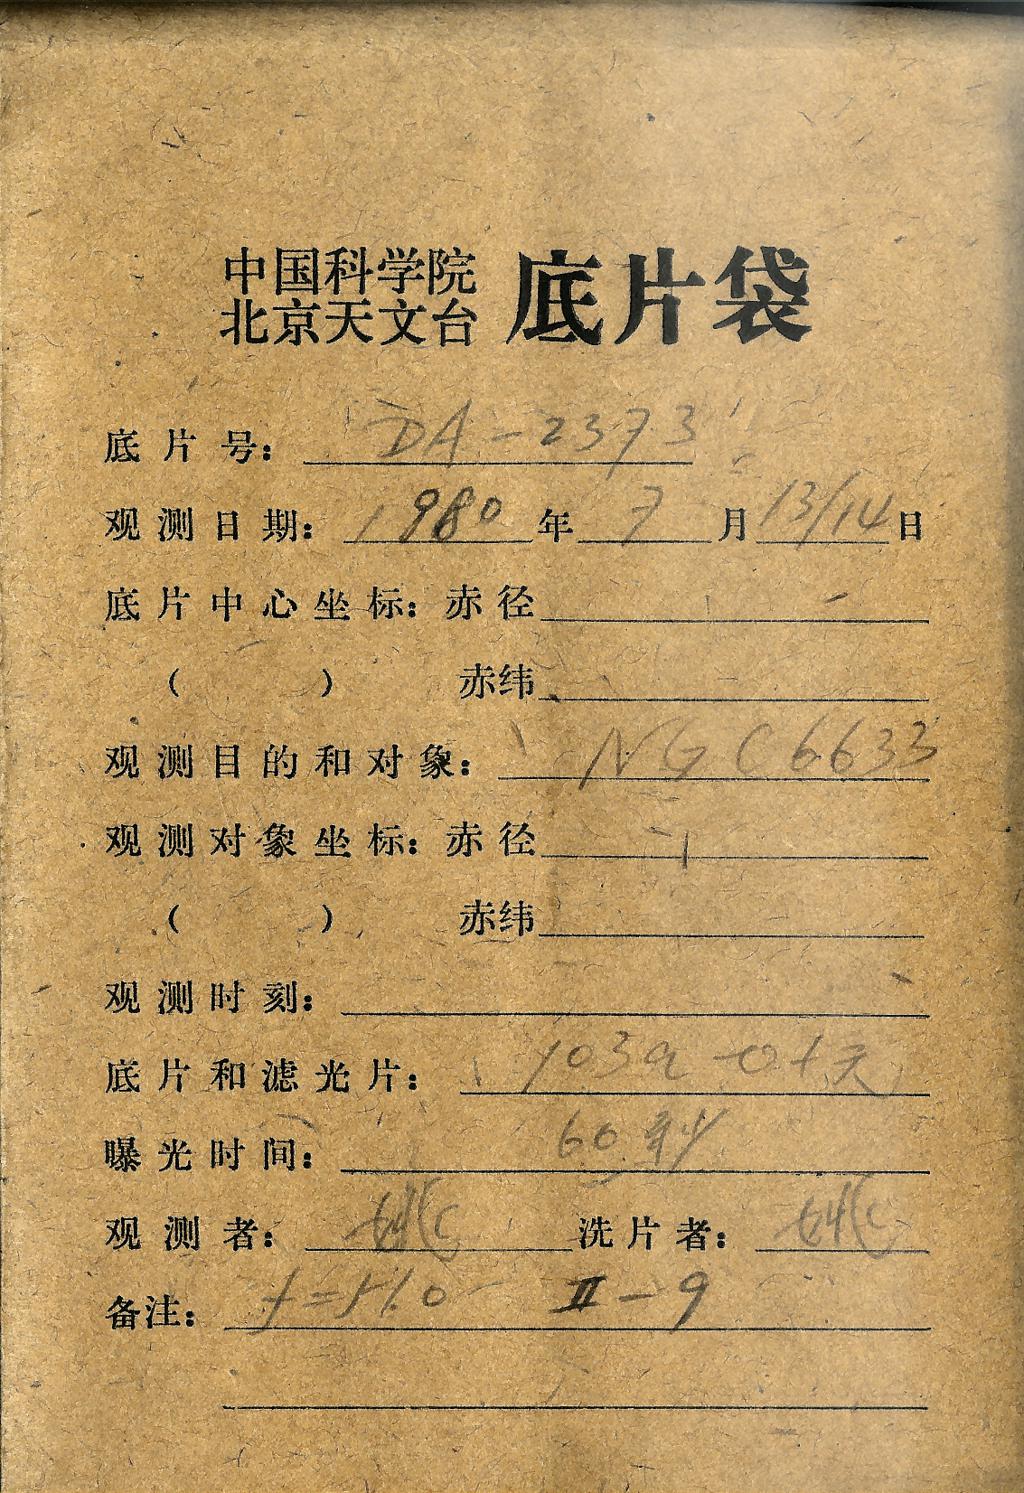 中国科学院
北京天文台 底片袋
底片号: DA-2373
观测日期: 1980年7月13/14日
底片中心坐标: 赤径
( ) 赤纬
观测目的和对象: NGC6633
观测对象坐标: 赤径
( ) 赤纬
观测时刻:
底片和滤光片: 103a-O+无
曝光时间: 60秒
观测者: 洗片者:
备注: f=51.0 II-9